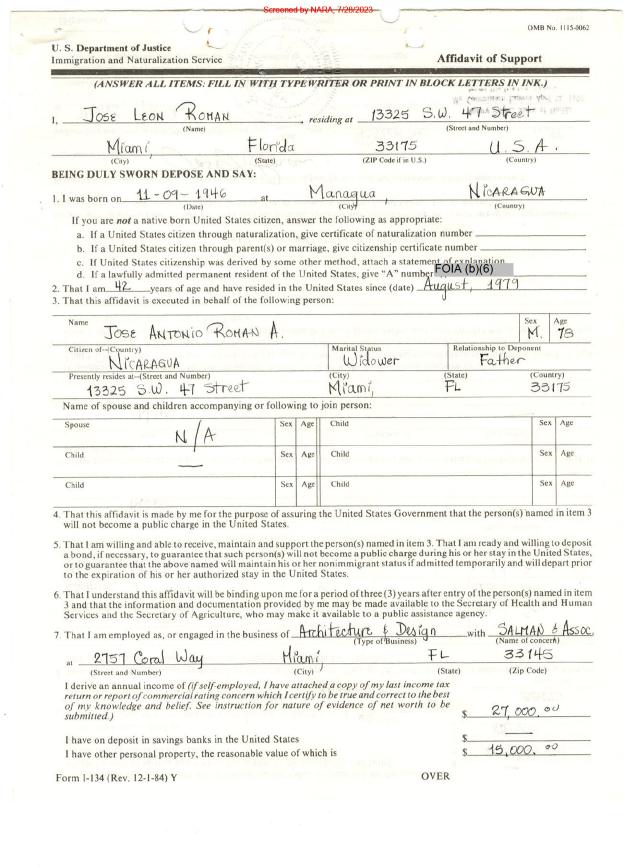 Screened by NARA, 7/28/2023
OMB No. 1115-0062
U. S. Department of Justice
Immigration and Naturalization Service Affidavit of Support
(ANSWER ALL ITEMS: FILL IN WITH TYPEWRITER OR PRINT IN BLOCK LETTERS IN INK.)
I, JOSE LEON ROMAN, residing at 13325 S.W. 47 Street
(Name) (Street and Number)
Miami, Florida 33175 U.S.A.
(City) (State) (ZIP Code if in U.S.) (Country)
BEING DULY SWORN DEPOSE AND SAY:
1. I was born on 11-09-1946 at Managua, NICARAGUA
(Date) (City) (Country)
If you are not a native born United States citizen, answer the following as appropriate:
a. If a United States citizen through naturalization, give certificate of naturalization number
b. If a United States citizen through parent(s) or marriage, give citizenship certificate number
c. If United States citizenship was derived by some other method, attach a statement of explanation
d. If a lawfully admitted permanent resident of the United States, give "A" number FOIA (b)(6)
2. That I am 42 years of age and have resided in the United States since (date) August, 1979
3. That this affidavit is executed in behalf of the following person:
Name Sex Age
JOSE ANTONIO ROMAN A. M. 78
Citizen of-(Country) Marital Status Relationship to Deponent
NICARAGUA Widower Father
Presently resides at-(Street and Number) (City) (State) (Country)
13325 S.W. 47 Street Miami, FL 33175
Name of spouse and children accompanying or following to join person:
Spouse Sex Age Child Sex Age
N/A
Child Sex Age Child Sex Age
—
Child Sex Age Child Sex Age
4. That this affidavit is made by me for the purpose of assuring the United States Government that the person(s) named in item 3
will not become a public charge in the United States.
5. That I am willing and able to receive, maintain and support the person(s) named in item 3. That I am ready and willing to deposit
a bond, if necessary, to guarantee that such person(s) will not become a public charge during his or her stay in the United States,
or to guarantee that the above named will maintain his or her nonimmigrant status if admitted temporarily and will depart prior
to the expiration of his or her authorized stay in the United States.
6. That I understand this affidavit will be binding upon me for a period of three (3) years after entry of the person(s) named in item
3 and that the information and documentation provided by me may be made available to the Secretary of Health and Human
Services and the Secretary of Agriculture, who may make it available to a public assistance agency.
7. That I am employed as, or engaged in the business of Architecture & Design with SALMAN & Assoc.
(Type of Business) (Name of concern)
at 2757 Coral Way Miami, FL 33145
(Street and Number) (City) (State) (Zip Code)
I derive an annual income of (if self-employed, I have attached a copy of my last income tax
return or report of commercial rating concern which I certify to be true and correct to the best
of my knowledge and belief. See instruction for nature of evidence of net worth to be
submitted.) $ 27,000.00
I have on deposit in savings banks in the United States $ —
I have other personal property, the reasonable value of which is $ 15,000.00
Form I-134 (Rev. 12-1-84) Y OVER